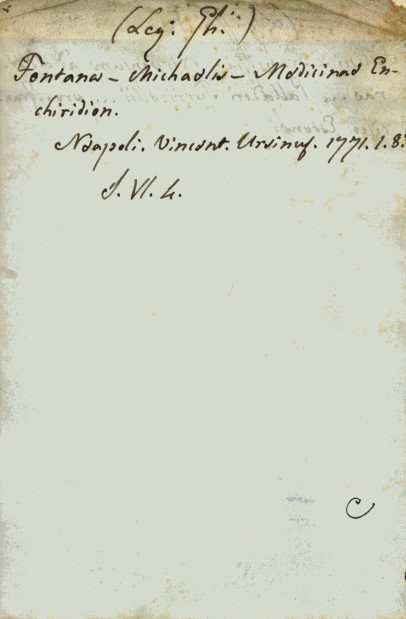 (Leg: Gh:)
Fontana - Michaelis - Medicinae En-
chiridion.
Neapoli. Vincent. Ursinus. 1771. 1. 8:
S. VI. 4.
C